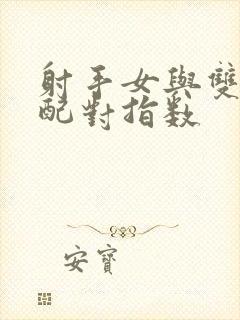 射手女與雙
配對指数
安寶